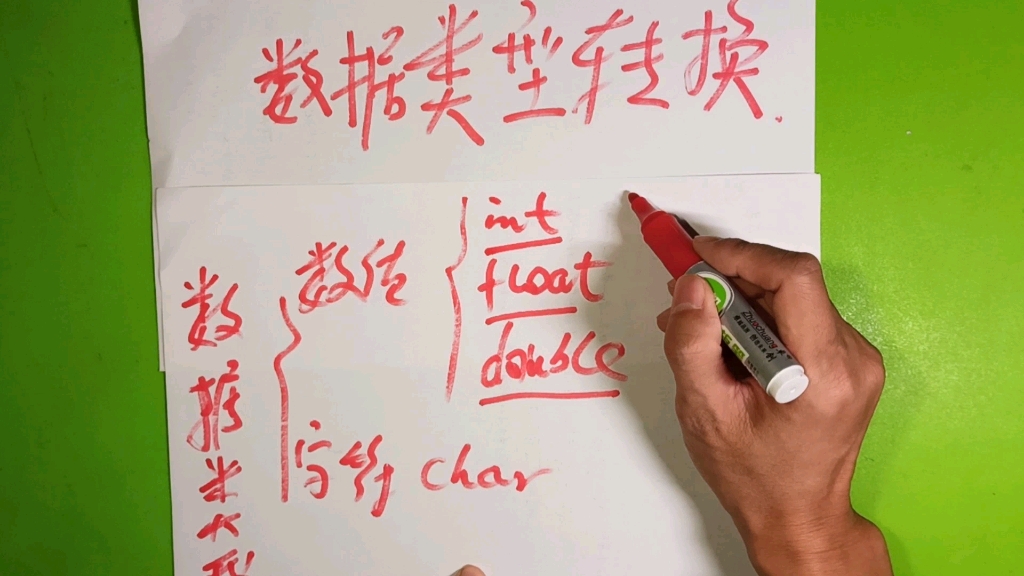 数据类型转换.
数据类型
数值
int
float
double
字符 char